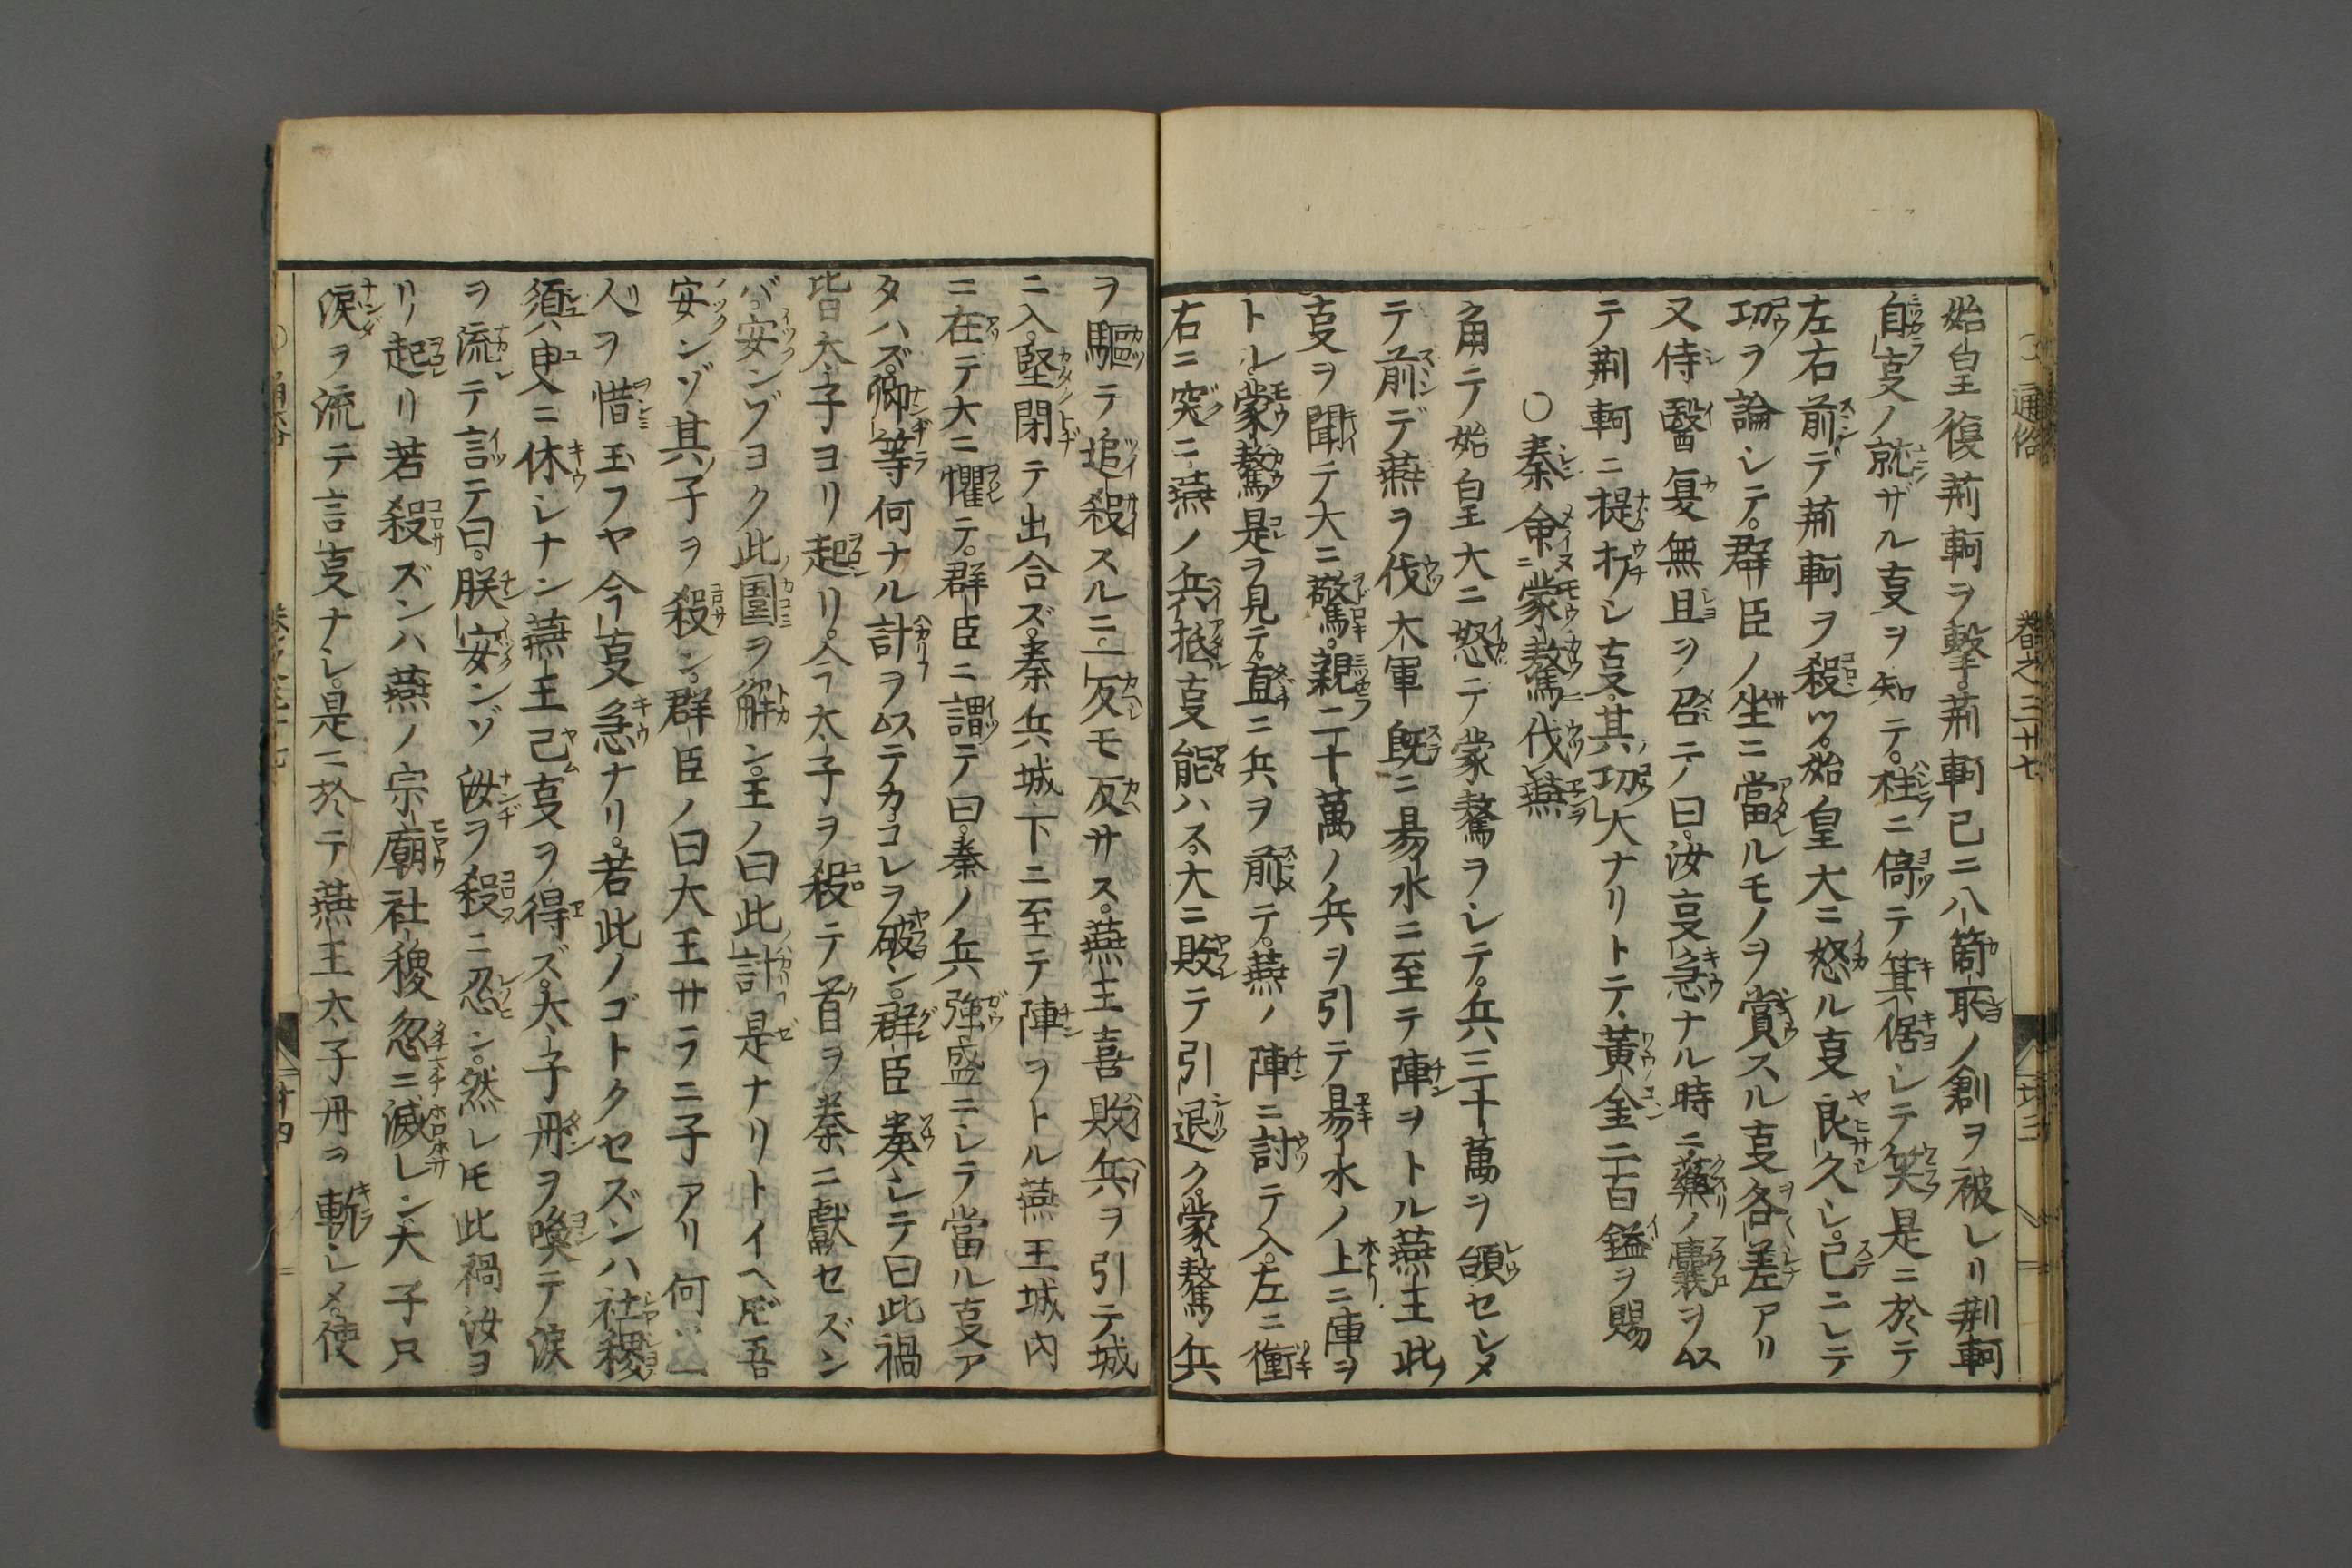 通俗 巻之三十七 廿三
始皇復荊軻ヲ撃。荊軻已ニ八箇所ノ創ヲ被レリ荊軻
自叓ノ就ザル叓ヲ知テ。柱ニ倚テ箕倨レテ笑是ニ於テ
左右前デ荊軻ヲ殺ツ。始皇大ニ怒ル叓良久レ。已ニレテ
功ヲ論レテ。群臣ノ坐ニ當ルモノヲ賞スル叓各差アリ
又侍醫夏無且ヲ召テノ曰。汝叓急ナル時ニ藥ノ囊ヲ以
テ荊軻ニ提打レ叓。其功大ナリトテ、黃金二百鎰ヲ賜
○秦命蒙驁伐燕
角テ始皇大ニ怒テ蒙驁ヲレテ。兵三十萬ヲ領セレメ
テ前デ燕ヲ伐大軍既ニ易水ニ至テ陣ヲトル燕王此
叓ヲ聞テ大ニ驚。親二十萬ノ兵ヲ引テ易水ノ上ニ陣ヲ
トレ蒙驁是ヲ見テ。直ニ兵ヲ前テ。燕ノ陣ニ討テ入。左ニ衝
右ニ突ニ燕ノ兵抵叓能ハス。大ニ敗テ引退ク。蒙驁兵
ヲ驅テ追殺スルニ。一反モ反サス。燕王喜敗兵ヲ引テ城
ニ入。堅閉テ出合ズ。秦兵城下ニ至テ陣ヲトル燕王城内
ニ在テ大ニ懼テ。群臣ニ謂テ曰。秦ノ兵強盛ニレテ當ル叓ア
タハズ。卿等何ナル計ヲ以テカ。コレヲ破ン。群臣奏レテ曰此禍
皆太子ヨリ起リ。今太子ヲ殺テ首ヲ秦ニ獻セズン
バ。安ンゾヨク此圍ヲ解ン。王ノ曰此計是ナリトイヘ𪜈吾
安ンゾ其子ヲ殺ン。群臣ノ曰大王サラニ子アリ何ゾ一
人ヲ惜玉フヤ今叓急ナリ。若此ノゴトクセズンハ社稷
須臾ニ休レナン燕王已叓ヲ得ズ。太子丹ヲ喚テ淚
ヲ流テ言テ曰。朕安ンゾ汝ヲ殺ニ忍ン。然レ𪜈此禍汝ヨ
リ起リ若殺ズンハ燕ノ宗廟社稷忽ニ滅レン太子只
淚ヲ流テ言叓ナレ。是ニ於テ燕王太子丹ヲ斬レメ。使
廿四